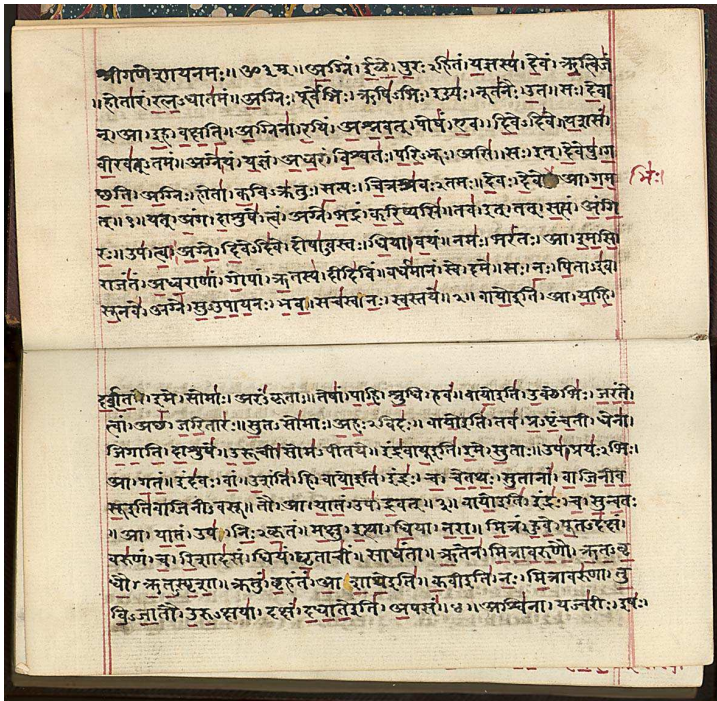 श्रीगणेशायनमः॥ ॐ३म्॥ अग्निं। ईळे। पुरःऽहितं। यज्ञस्य। देवं। ऋत्विजं
॥होतारं। रत्नऽधातमं॥ अग्निः। पूर्वेभिः। ऋषिऽभिः। ईड्यः। नूतनैः। उत॥ सः। देवा
न्। आ। इह। वक्षति॥ अग्निना। रयिं। अश्नवत्। पोषं। एव। दिवेऽदिवे॥ यशसं।
वीरवत्ऽतमं॥ अग्ने। यं। यज्ञं। अध्वरं। विश्वतः। परिऽभूः। असि॥ सः। इत्। देवेषु। ग
च्छति। अग्निः। होता। कविऽक्रतुः। सत्यः। चित्रश्रवःऽतमः॥ देवः। देवे आ। गम
भिः।
त्॥१॥ यत्। अंग। दाशुषे। त्वं। अग्ने। भद्रं। करिष्यसि॥ तव। इत्। तत्। सत्यं। अंगि
रः॥ उप। त्वा। अग्ने। दिवेऽदिवे। दोषाऽवस्तः। धिया। वयं॥ नमः। भरंतः। आ। इमसि॥
राजंतं। अध्वराणां। गोपां। ऋतस्य। दीदिविं॥ वर्धमानं। स्वे। दमे॥ सः। नः। पिताऽइव।
सूनवे। अग्ने। सुऽउपायनः। भव॥ सचस्व। नः। स्वस्तये॥२॥ वायोइति। आ। याहि।
दर्शत। इमे। सोमाः। अरंऽकृताः॥ तेषां। पाहि। श्रुधि। हवं॥ वायोइति। उक्थेभिः। जरंते।
त्वां। अच्छ। जरितारः॥ सुतऽसोमाः। अहःऽविदः॥ वायोइति। तव। प्रऽपृंचती। धेना।
जिगाति। दाशुषे॥ उरूची। सोमऽपीतये॥ इंद्रवायूइति। इमे। सुताः॥ उप। प्रयःऽभिः।
आ। गतं॥ इंदवः। वां। उशंति। हि॥ वायोइति। इंद्रः। च। चेतथः। सुतानां। वाजिनीव
सूइतिवाजिनीऽवसू॥ तौ। आ। यातं। उप। द्रवत्॥३॥ वायोइति। इंद्रः। च। सुन्वतः
॥ आ। यातं। उप। निःऽकृतं॥ मक्षु। इत्था। धिया। नरा॥ मित्रं। हुवे। पूतऽदक्षं।
वरुणं। च। रिशादसं॥ धियं। घृताचीं। साधंता॥ ऋतेन। मित्रावरुणौ। ऋतऽवृ
धौ। ऋतऽस्पृशा॥ क्रतुं। बृहंतं। आशाथेइति॥ कवीइति। नः। मित्रावरुणा। तु
विऽजातौ। उरुऽक्षया॥ दक्षं। दधातेइति। अपसं॥४॥ अश्विना। यज्वरीः। इषः।